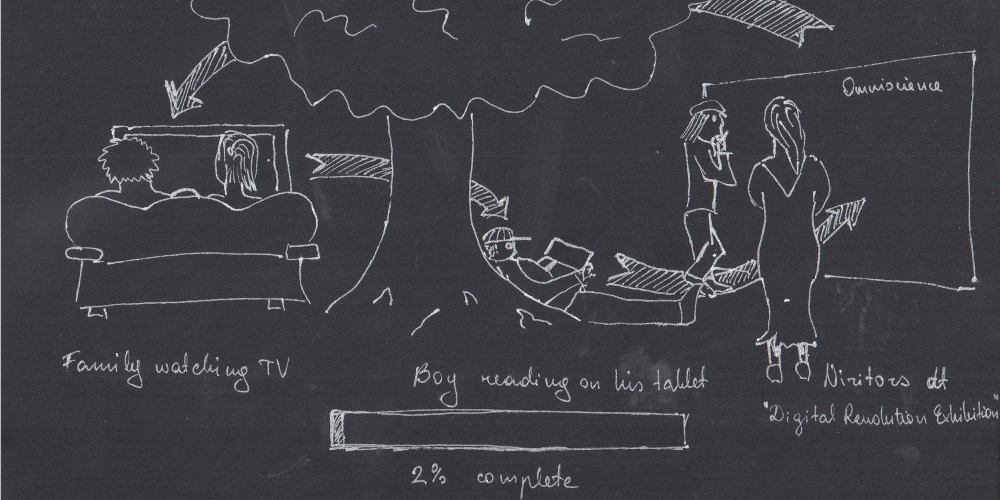 Omniscience
Family watching TV
Boy reading on his tablet
Visitors at
"Digital Revolution Exhibition"
2% complete